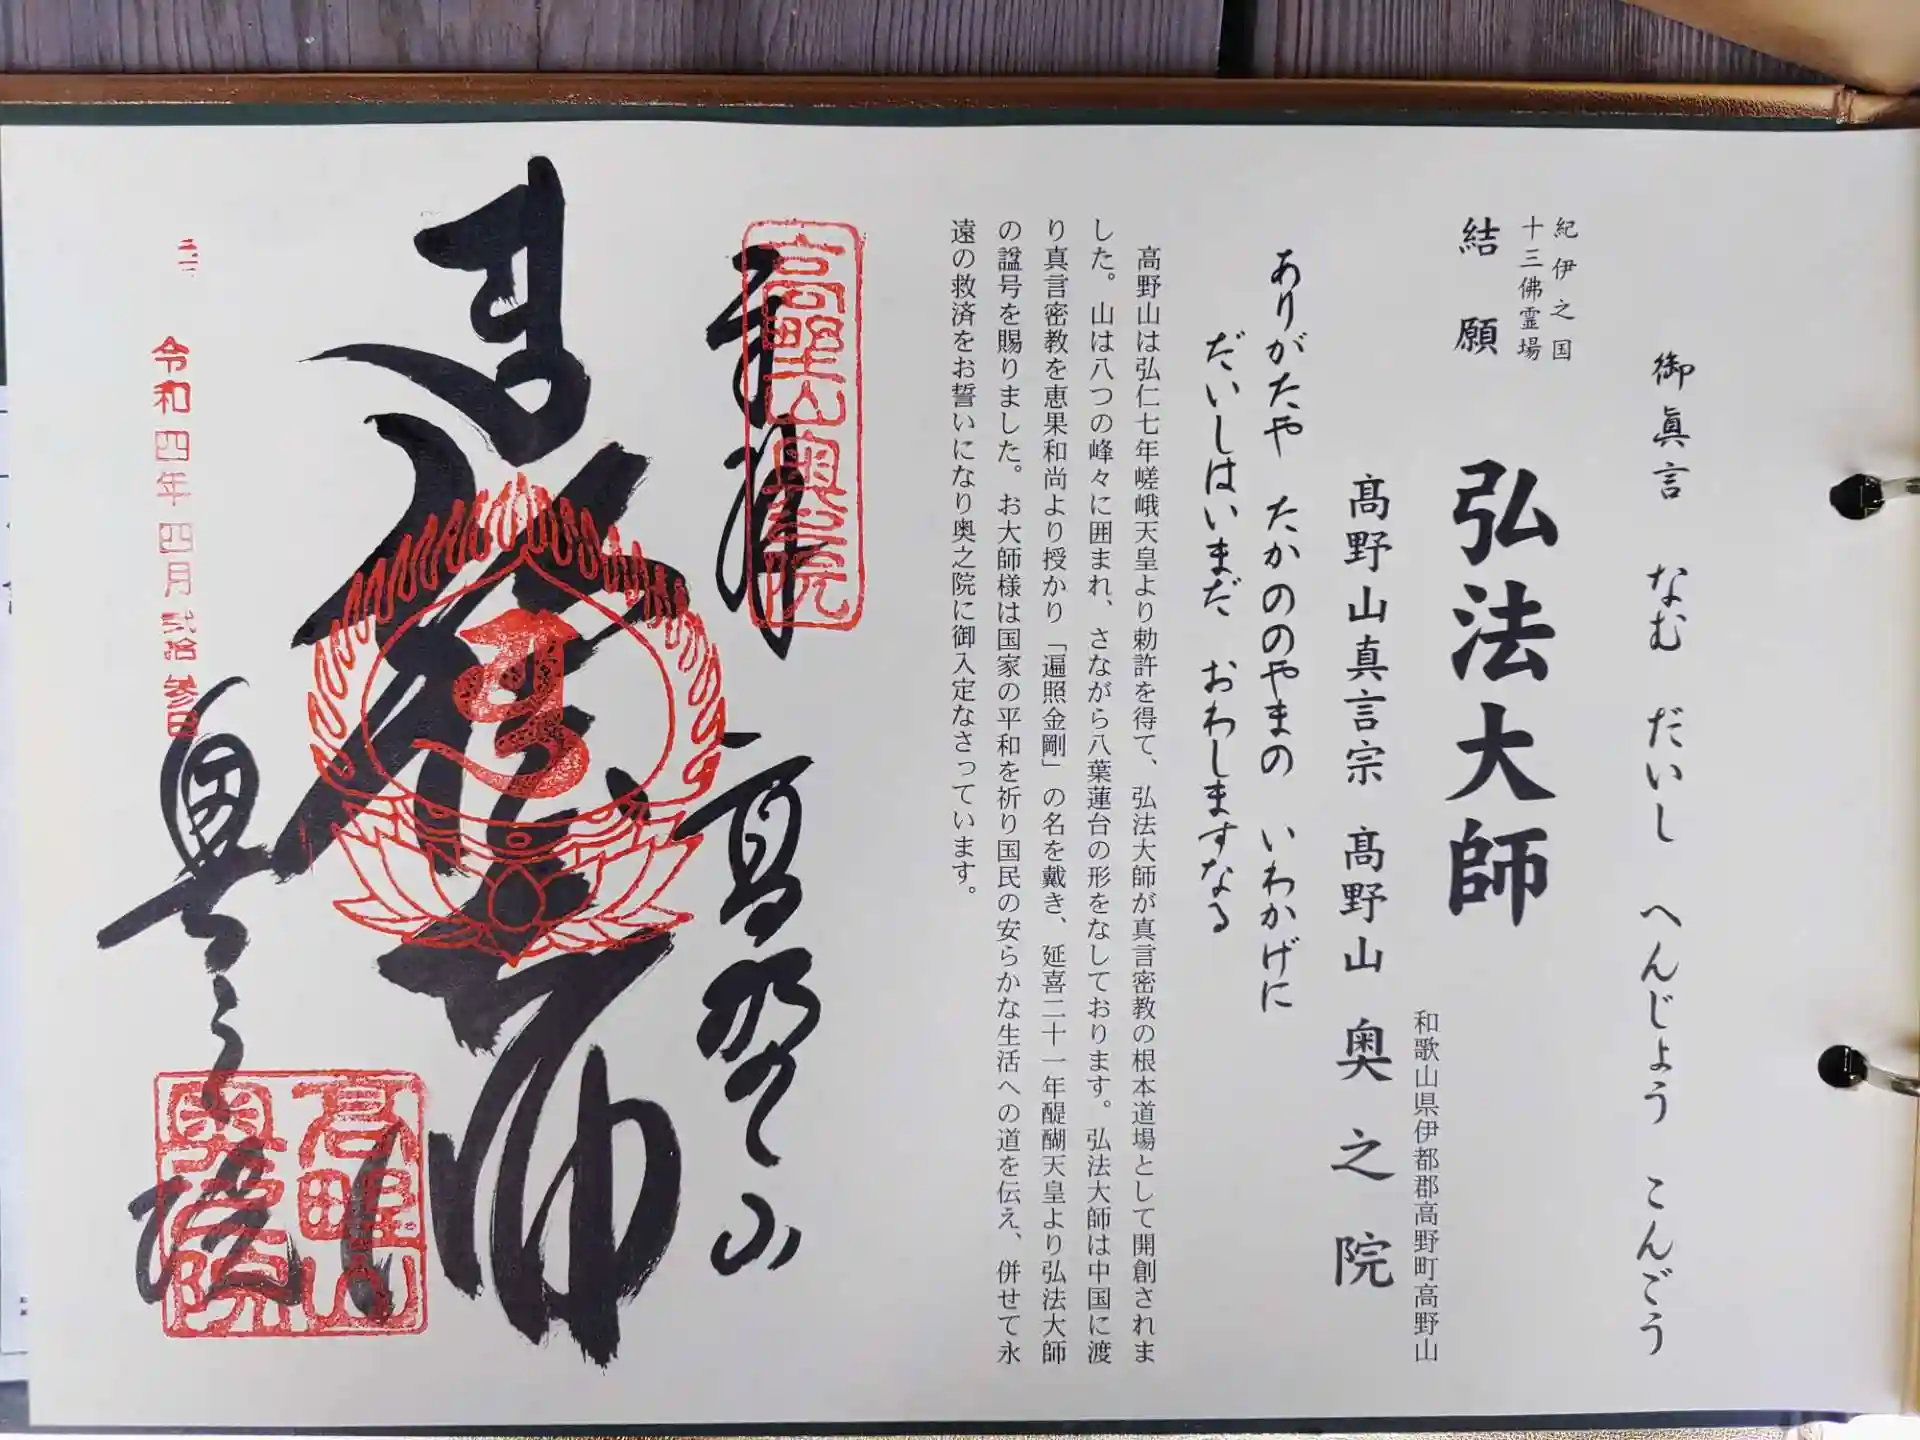 御眞言　なむ　だいし　へんじょう　こんごう
紀伊之国
十三佛霊場
結願　弘法大師
和歌山県伊都郡高野町高野山
髙野山真言宗　髙野山　奥之院
ありがたや　たかののやまの　いわかげに
だいしはいまだ　おわしますなる
高野山は弘仁七年嵯峨天皇より勅許を得て、弘法大師が真言密教の根本道場として開創されま
した。山は八つの峰々に囲まれ、さながら八葉蓮台の形をなしております。弘法大師は中国に渡
り真言密教を恵果和尚より授かり「遍照金剛」の名を戴き、延喜二十一年醍醐天皇より弘法大師
の諡号を賜りました。お大師様は国家の平和を祈り国民の安らかな生活への道を伝え、併せて永
遠の救済をお誓いになり奥之院に御入定なさっています。
高野山奥之院
奉拝　高野山
弘法大師
奥之院
高野山
奥之院
令和四年四月弐拾参日